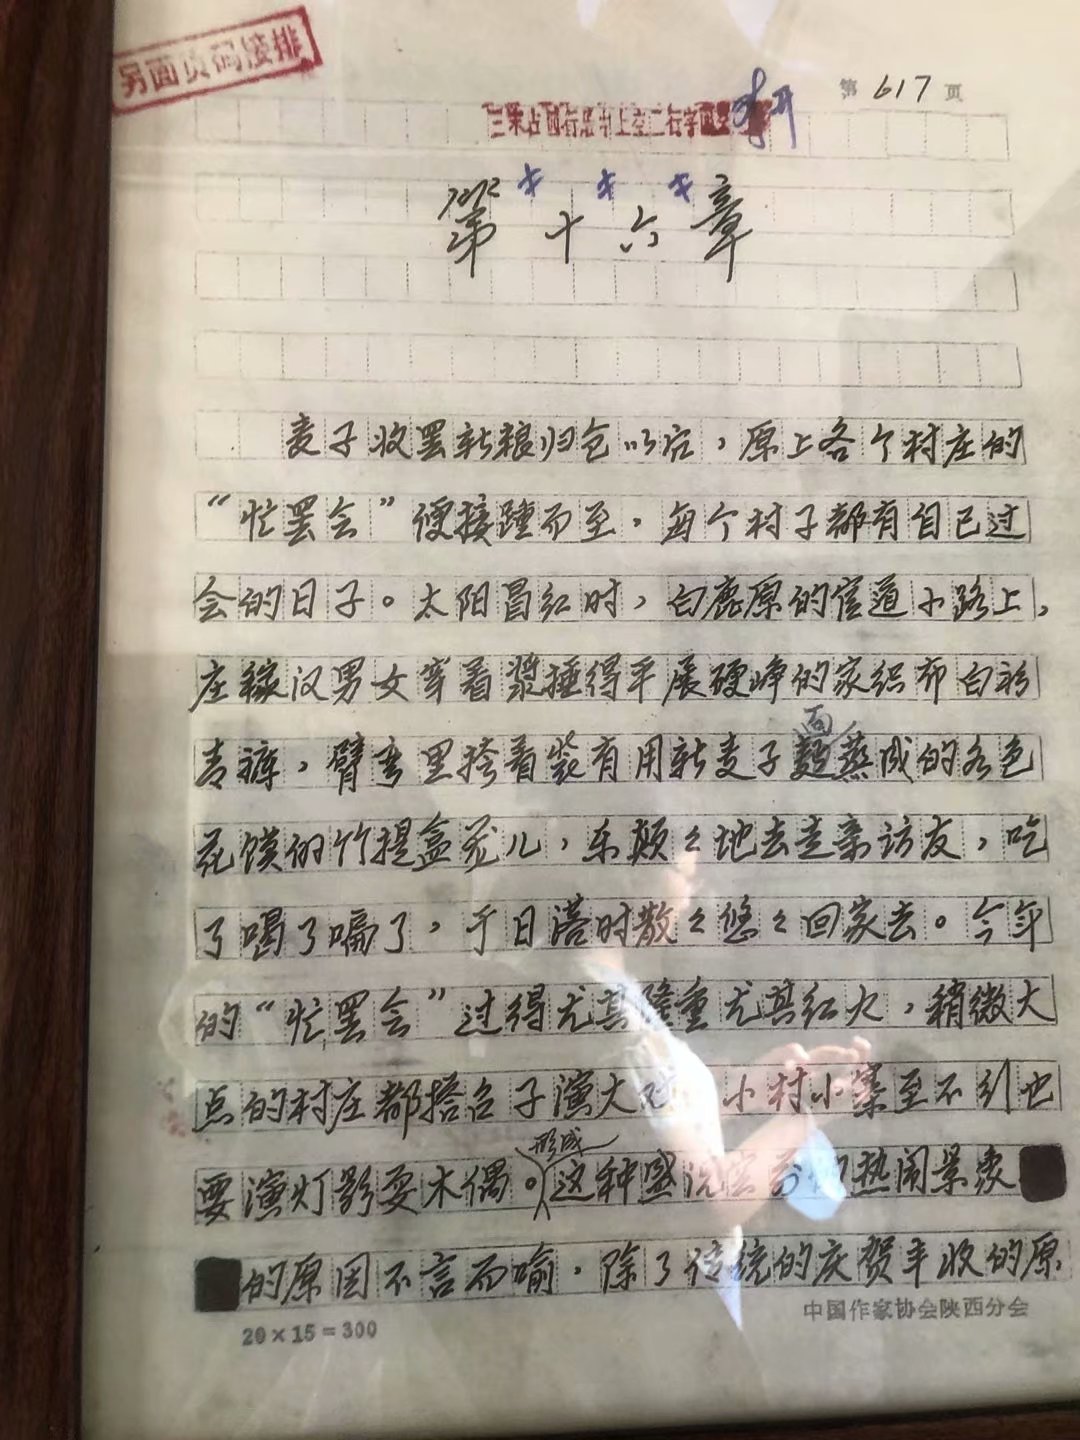 另面页码接排
第 617 页
三宋占四行居中上空二行字
第十六章
麦子收罢新粮归仓以后，原上各个村庄的
“忙罢会”便接踵而至，每个村子都有自己过
会的日子。太阳冒红时，白鹿原的官道小路上，
庄稼汉男女穿着浆捶得平展硬峥的家织布白衫
青裤，臂弯里挎着装有用新麦子麺蒸成的各色
面
花馍的竹提盒笼儿，乐颠々地去走亲访友，吃
了喝了嗝了，于日落时散々悠々回家去。今年
的“忙罢会”过得尤其隆重尤其红火，稍微大
点的村庄都搭台子演大 小村小寨至不引也
要演灯影耍木偶。这种盛 热闹景象
形成
的原因不言而喻，除了传统的庆贺丰收的原
20×15=300
中国作家协会陕西分会